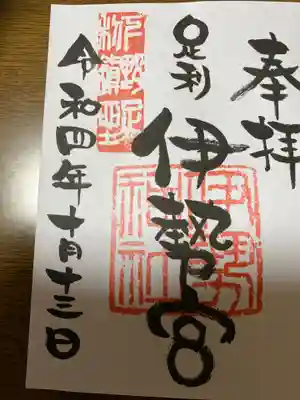 奉拝
足利
伊勢宮
伊勢
神社
令和四年十月十三日